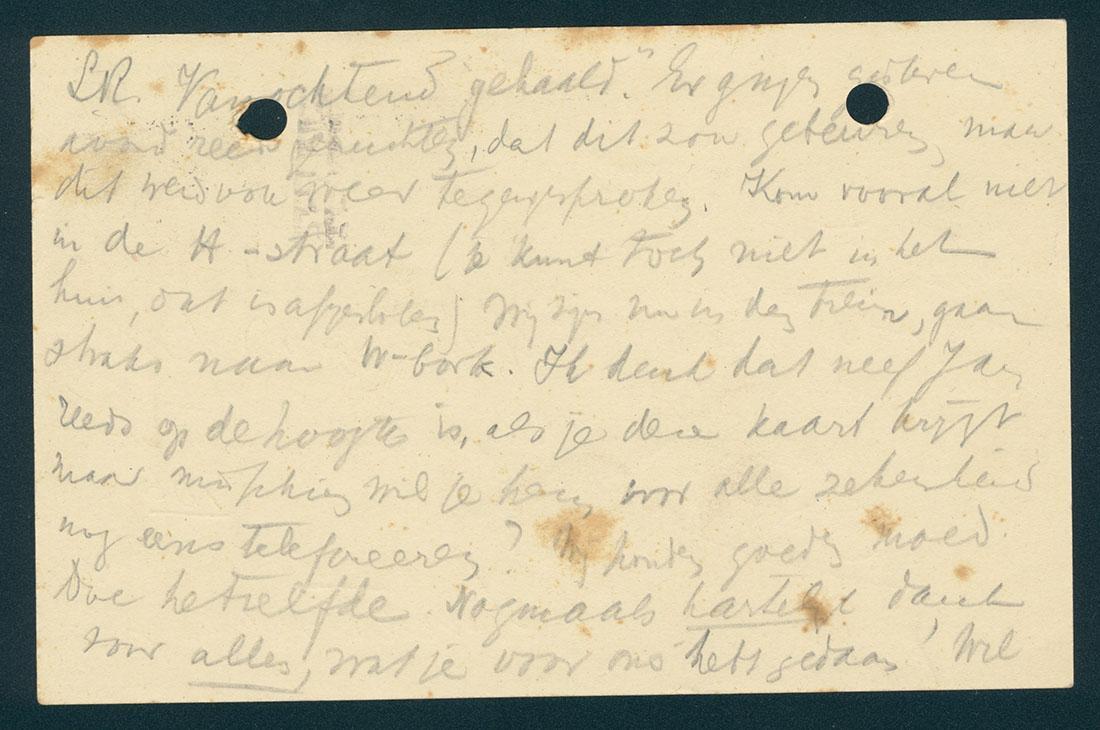 L.R. Vanochtend "gehaald". Er gingen gisteren
avond reeds geruchten, dat dit zou gebeuren, maar
dit werd weer tegengesproken. Kom vooral niet
in de H-straat (je kunt toch niet in het
huis, dat is afgesloten) Wij zijn nu in den trein, gaan
straks naar W-bork. Ik denk dat neef Jan
reeds op de hoogte is, als je deze kaart krijgt
maar misschien wil je hem voor alle zekerheid
nog eens telefoneeren? Wij houden goeden moed.
Doe hetzelfde. Nogmaals hartelijk dank
voor alles, wat je voor ons hebt gedaan! Wil